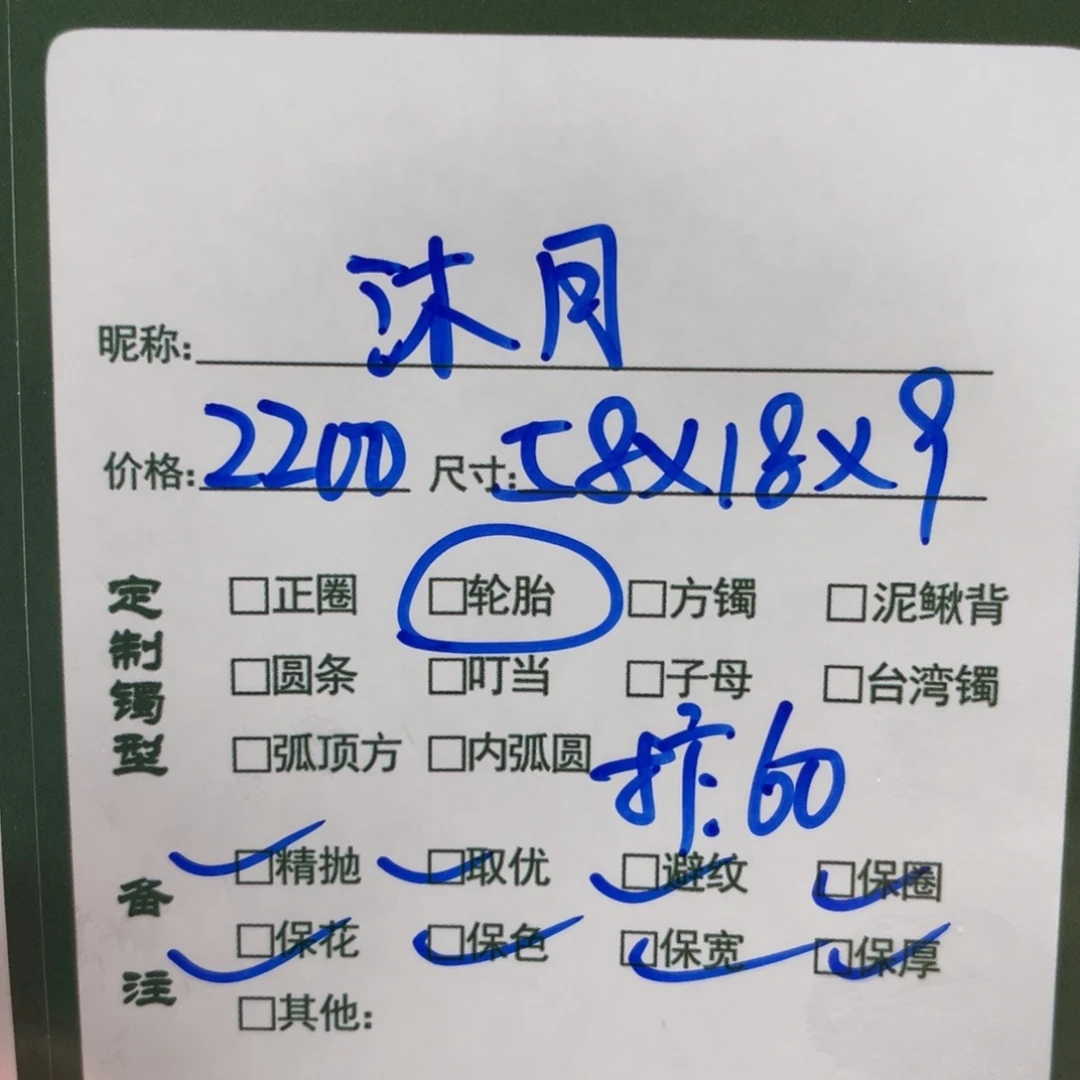 昵称: 沐月
价格: 2200 尺寸: 58×18×9
定制镯型
□正圈 □轮胎 □方镯 □泥鳅背
□圆条 □叮当 □子母 □台湾镯
□弧顶方 □内弧圆
60
备注
□精抛 □取优 □避纹 □保圈
□保花 □保色 □保宽 □保厚
□其他: